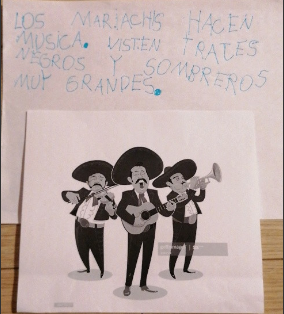 LOS MARIACHIS HACEN
MUSICA. VISTEN TRAJES
NEGROS Y SOMBREROS
MUY GRANDES.